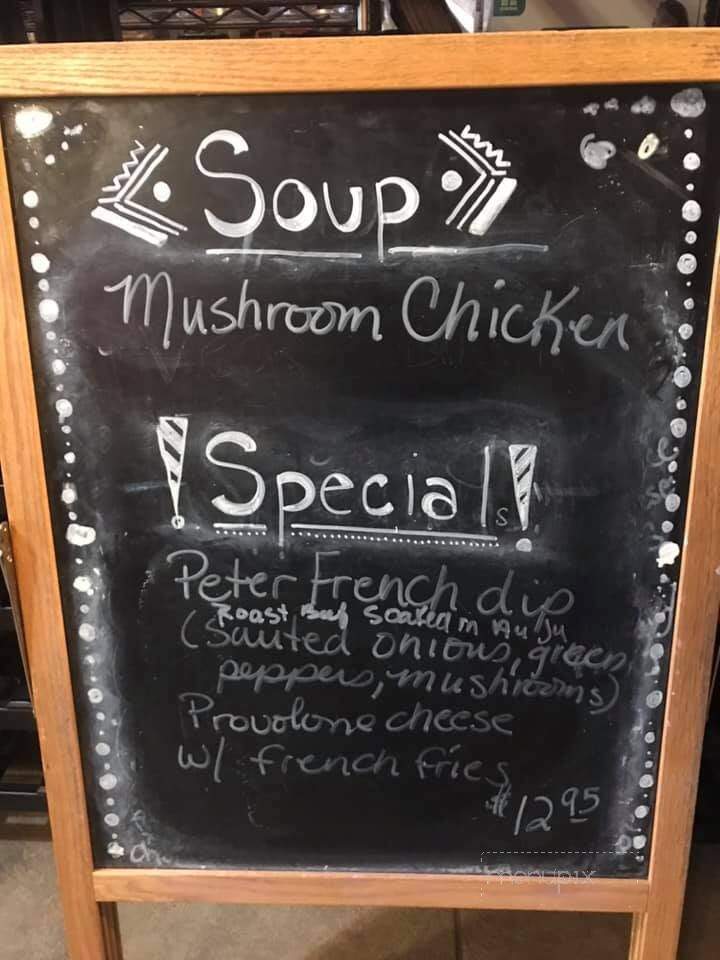 Soup
Mushroom Chicken
! Specials !
Peter French dip
Roast Beef Soaked in Au Ju
(Sauted onions, green
peppers, mushrooms)
Provolone cheese
w/ french fries
$12.95
menupix